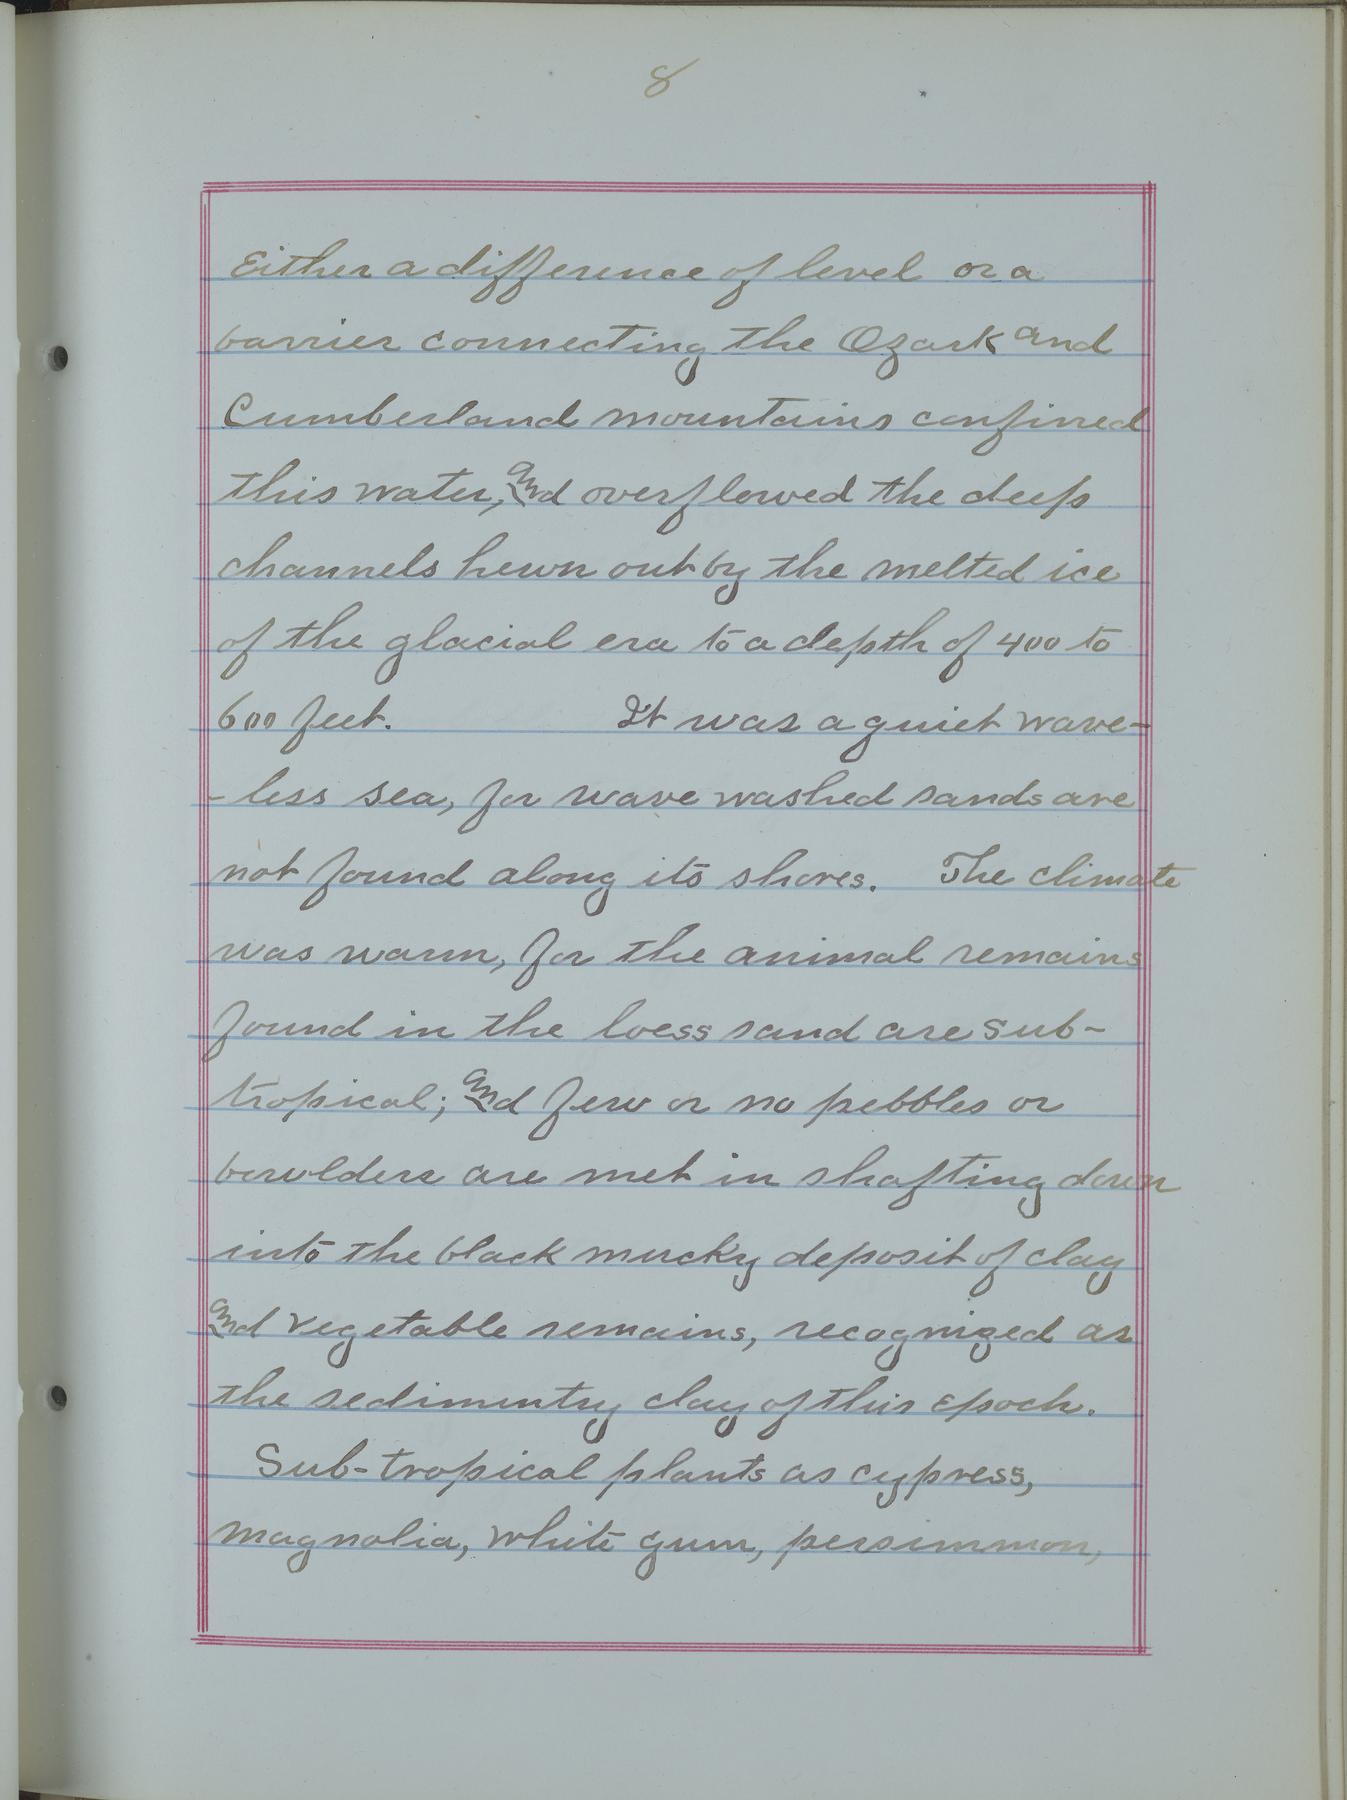 8
Either a difference of level or a
barrier connecting the Ozark and
Cumberland mountains confined
this water, and overflowed the deep
channels hewn out by the melted ice
of the glacial era to a depth of 400 to
600 feet. It was a quiet wave-
-less sea, for wave washed sands are
not found along its shores. The climate
was warm, for the animal remains
found in the loess sand are sub-
tropical; and few or no pebbles or
bowlders are met in shafting down
into the black mucky deposit of clay
and vegetable remains, recognized as
the sedimentry clay of this epoch.
Sub-tropical plants as cypress,
magnolia, white gum, persimmon,